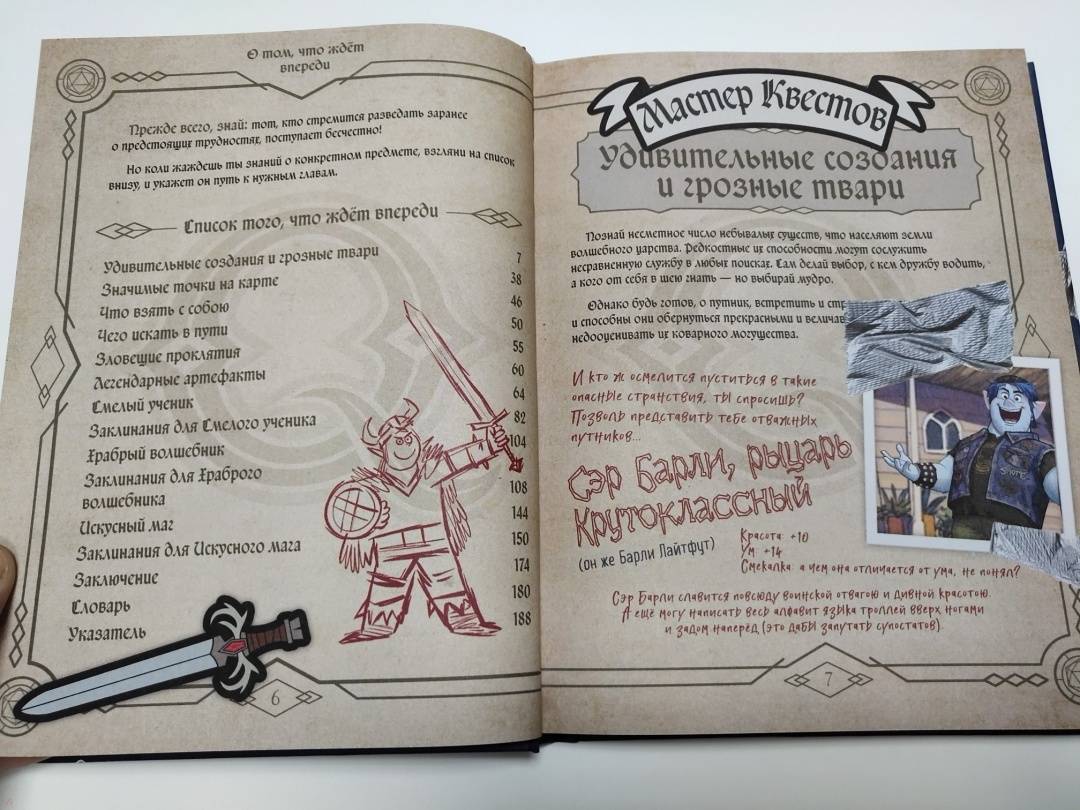 О том, что ждёт
впереди
Прежде всего, знай: тот, кто стремится разведать заранее
о предстоящих трудностях, поступает бесчестно!
Но коли жаждешь ты знаний о конкретном предмете, взгляни на список
внизу, и укажет он путь к нужным главам.
Список того, что ждёт впереди
Удивительные создания и грозные твари 7
Значимые точки на карте 38
Что взять с собою 46
Чего искать в пути 50
Зловещие проклятия 55
Легендарные артефакты 60
Смелый ученик 64
Заклинания для Смелого ученика 82
Храбрый волшебник 104
Заклинания для Храброго
волшебника 108
Искусный маг 144
Заклинания для Искусного мага 150
Заключение 174
Словарь 180
Указатель 188
6
Мастер Квестов
Удивительные создания
и грозные твари
Познай несметное число небывалых существ, что населяют земли
волшебного царства. Редкостные их способности могут сослужить
несравненную службу в любых поисках. Сам делай выбор, с кем дружбу водить,
а кого от себя в шею гнать — но выбирай мудро.
Однако будь готов, о путник, встретить и
и способны они обернуться прекрасными и
недооценивать их коварного могущества.
И кто ж осмелится пуститься в такие
опасные странствия, ты спросишь?
Позволь представить тебе отважных
путников...
Сэр Барли, рыцарь
Крутоклассный
(он же Барли Лайтфут)
Красота: +10
Ум: +14
Смекалка: а чем она отличается от ума, не понял?
Сэр Барли славится повсюду воинской отвагою и дивной красотою.
А ещё могу написать весь алфавит языка троллей вверх ногами
и задом наперёд (это дабы запутать супостатов).
7